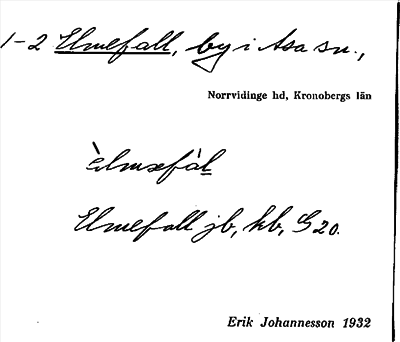 1-2 Elmefall, by i Asa sn.,
Norrvidinge hd, Kronobergs län
èlməfàl
Elmefall jb, kb, G 20.
Erik Johannesson 1932